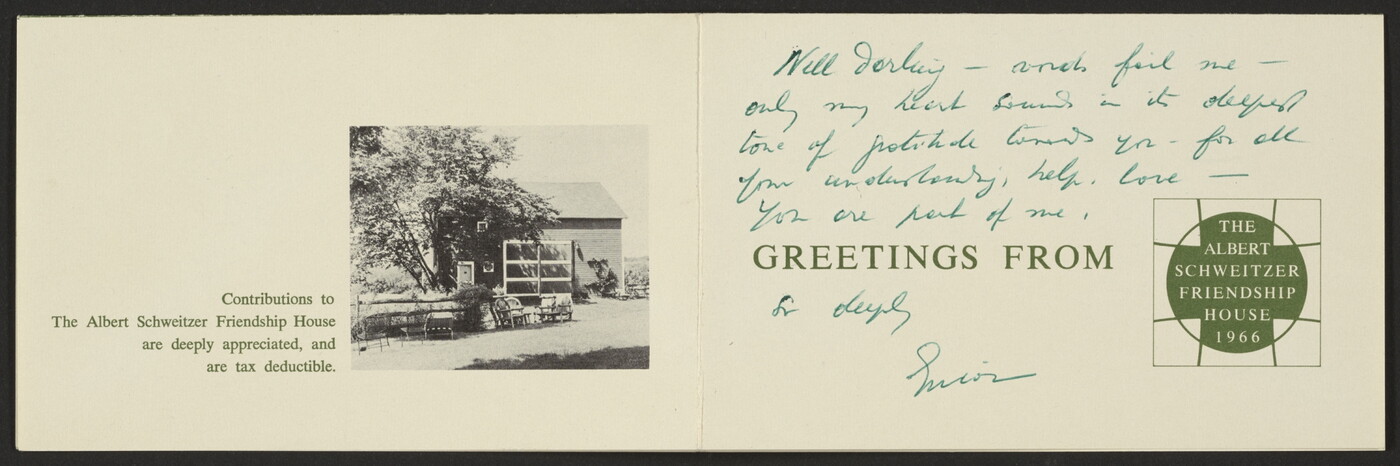 Contributions to
The Albert Schweitzer Friendship House
are deeply appreciated, and
are tax deductible.
Nell Darling — words fail me —
only my heart sounds in its deepest
tone of gratitude towards you - for all
your understanding, help, love —
You are part of me,
GREETINGS FROM
so deeply
THE
ALBERT
SCHWEITZER
FRIENDSHIP
HOUSE
1966